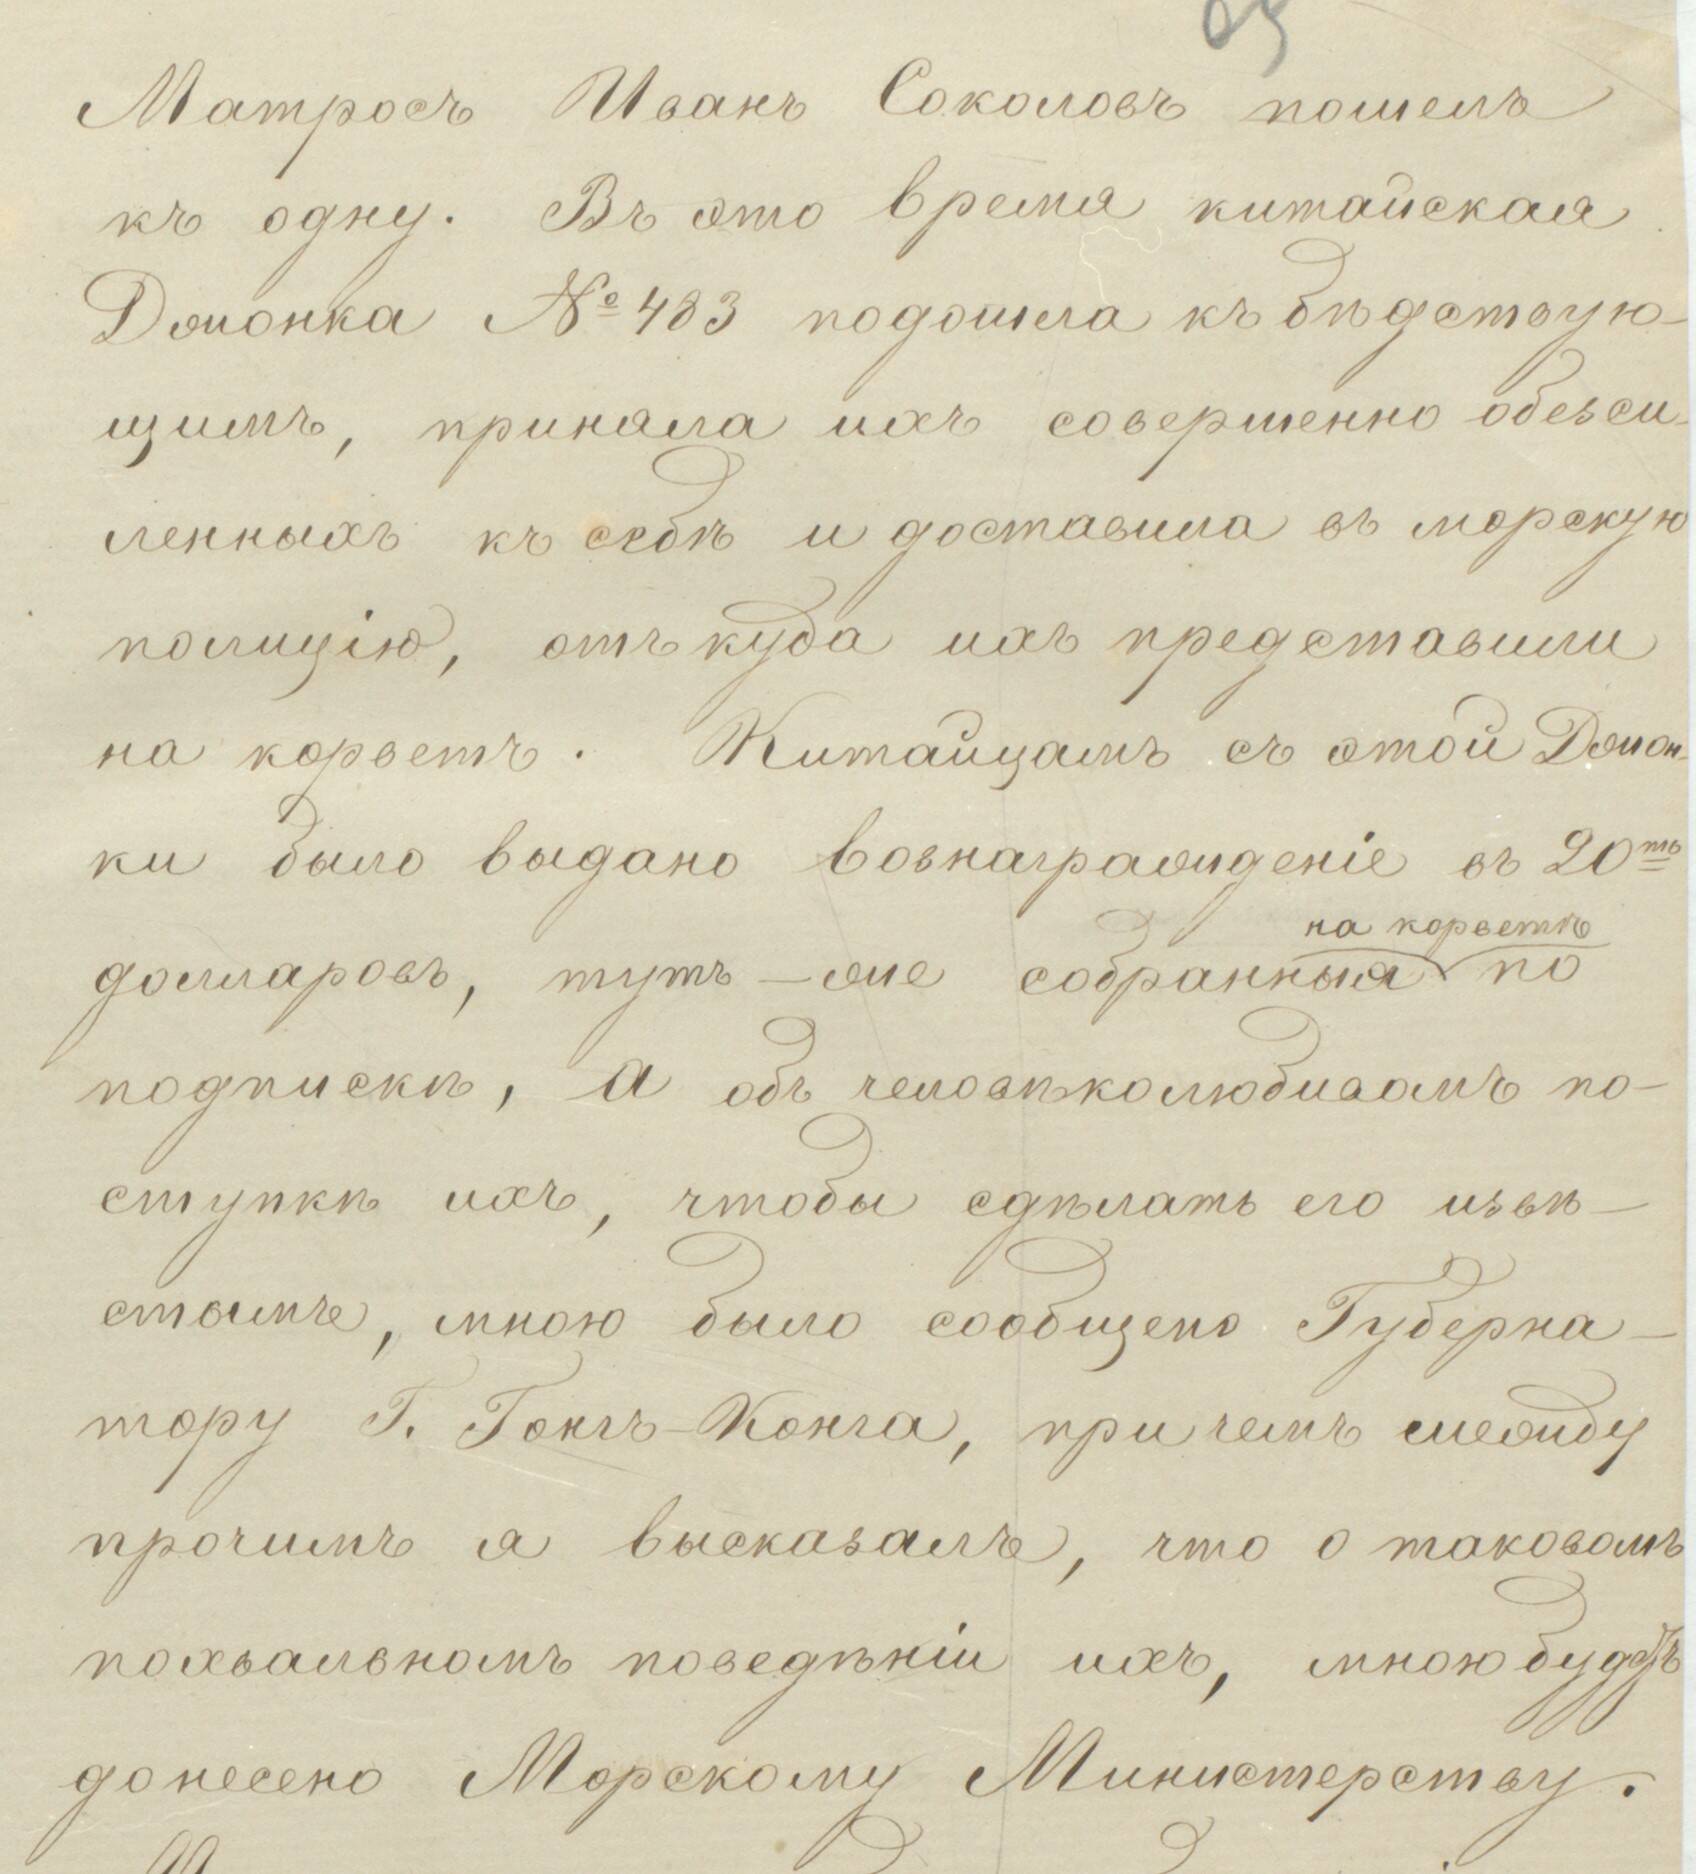 Матросъ Иванъ Соколовъ пошелъ
къ одну. Въ это время китайская
Джонка № 483 подошла къ бѣдствую-
щимъ, приняла ихъ совершенно обезси-
ленныхъ къ себѣ и доставила въ морскую
полицію, отъкуда ихъ представили
на корветъ. Китайцамъ съ этой Джон-
ки было выдано вознагражденіе въ 20ть
на корветѣ
долларовъ, тутъ-же собранныя по
подпискѣ, а объ человѣколюбивомъ по-
ступкѣ ихъ, чтобы сдѣлать его извѣ-
стнымъ, мною было сообщено Губерна-
тору Г. Гонгъ-Конга, при чемъ между
прочимъ я высказалъ, что о таковомъ
похвальномъ поведѣніи ихъ, мною будетъ
донесено Морскому Министерству.